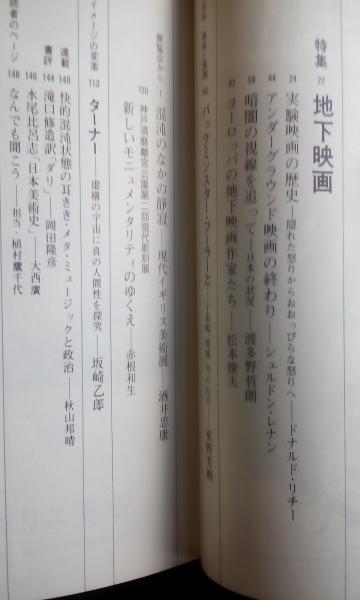 特集 22 地下映画
24 実験映画の歴史——隠れた怒りからおおっぴらな怒りへ——ドナルド・リチー
44 アンダーグラウンド映画の終わり——シェルドン・レナン
59 暗闇の視線を追って——日本の状況——波多野哲朗
62 ヨーロッパの地下映画作家たち——松本俊夫
バックミンスター・フラーと 東野芳明
展覧会から 1 混沌のなかの静寂——現代イギリス美術展——酒井忠康
130 神戸須磨離宮公園第二回現代彫刻展
新しいモニュメンタリティのゆくえ——赤根和生
イメージの変革
113 ターナー——虚構の宇宙に真の人間性を探究——坂崎乙郎
連載 140 快的混沌状態の耳きき・メタ・ミュージックと政治——秋山邦晴
書評 144 滝口修造訳「ダリ」——岡田隆彦
146 水尾比呂志「日本美術史」——大西廣
読者のページ 148 なんでも聞こう——担当・植村鷹千代